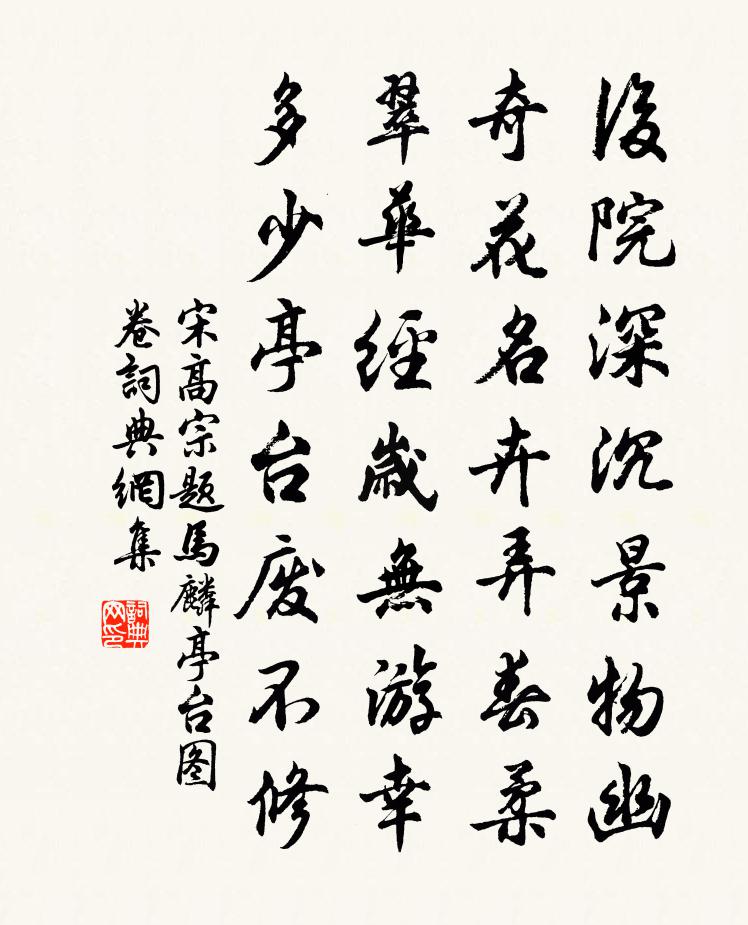 後院深沉景物幽
奇花名卉弄春柔
翠華經歲無游幸
多少亭台废不修
宋高宗题馬麟亭台图
卷詞典網集
詞典
网印